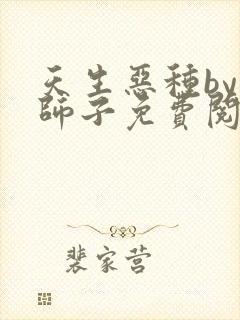 天生惡種by
師子免費閱
裴家营